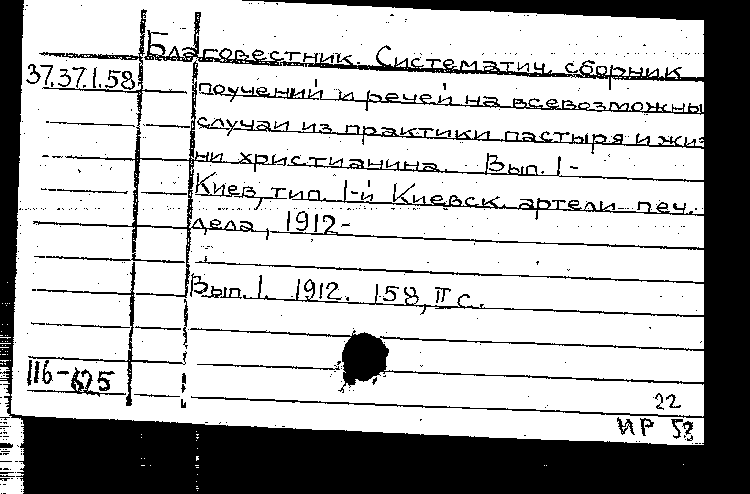 Благовестник. Систематич. сборник
37.37.1.58
поучений и речей на всевозможны
случаи из практики пастыря и жиз
ни христианина. Вып. 1-
Киев, тип. 1-й Киевск. артели печ.
дела, 1912-
Вып. 1. 1912. 158, II с.
116-625
22
ИР 58